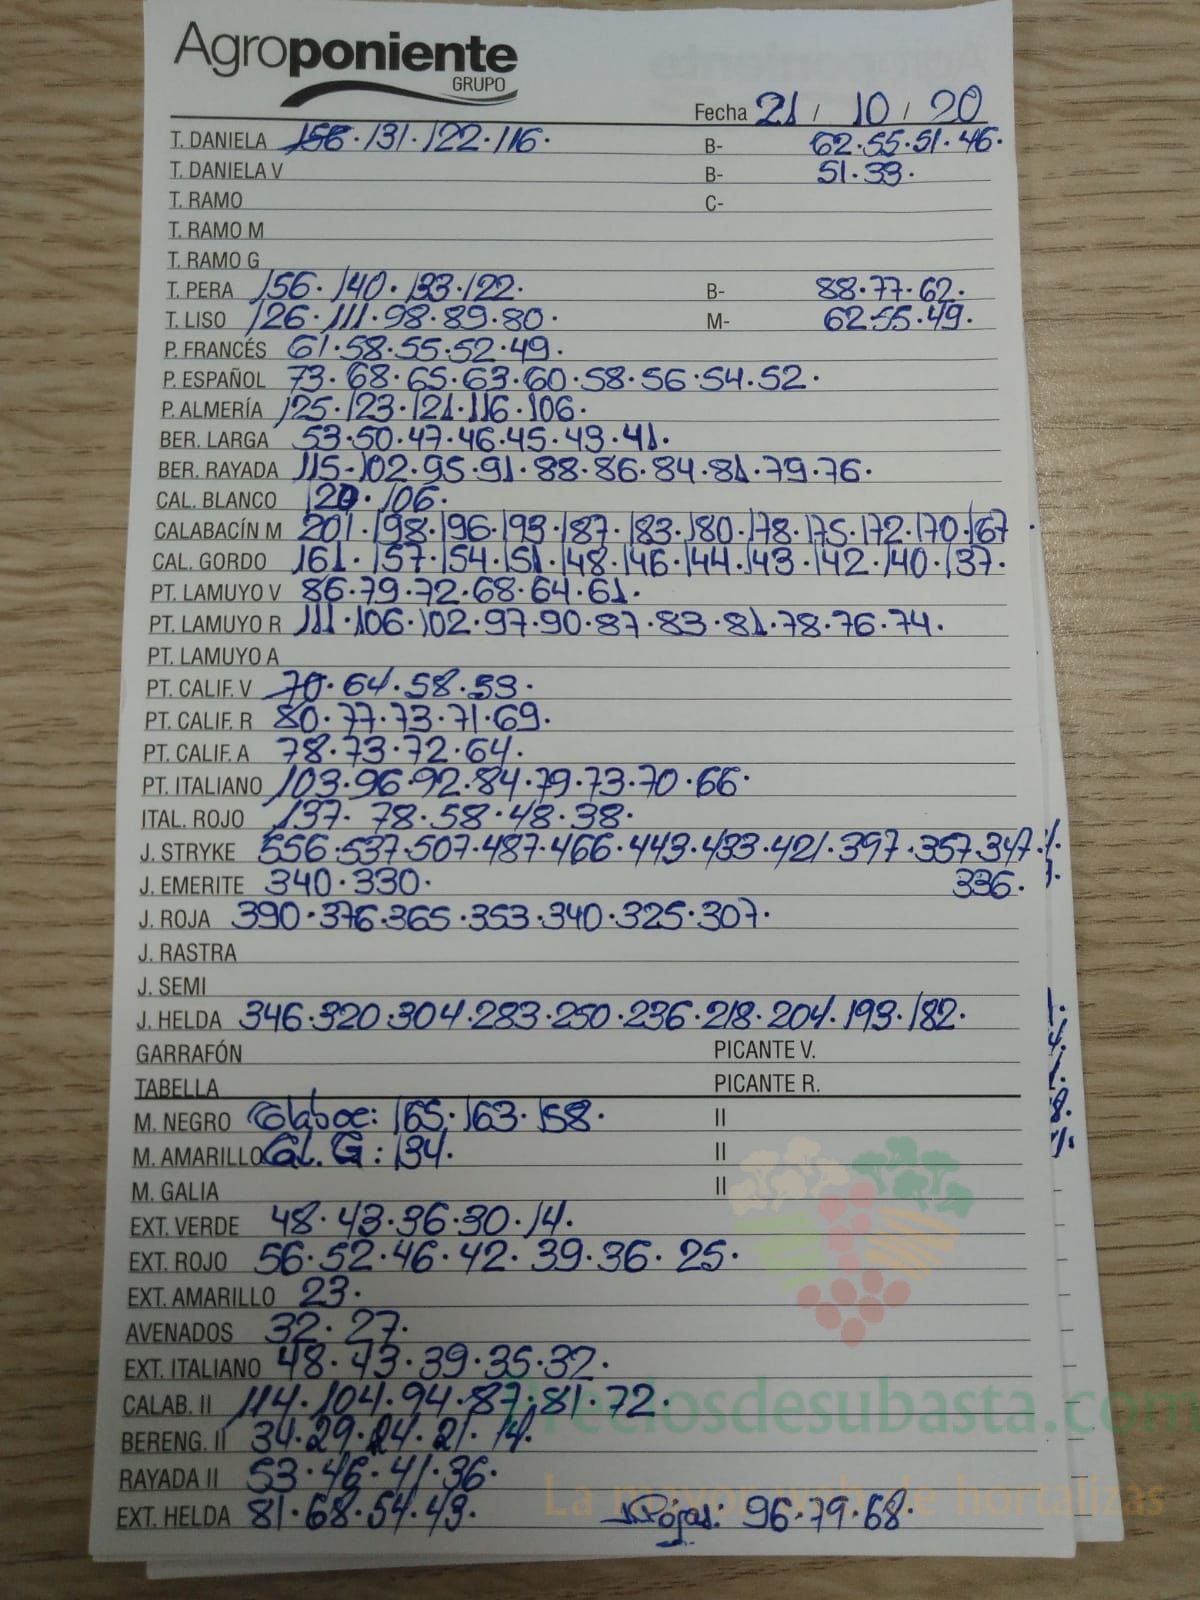 Agroponiente
GRUPO
Fecha 21 / 10 / 20
T. DANIELA 156·131·122·116· B- 62·55·51·46·
T. DANIELA V B- 51·33·
T. RAMO C-
T. RAMO M
T. RAMO G
T. PERA 156·140·133·122· B- 88·77·62·
T. LISO 126·111·98·89·80· M- 62·55·49·
P. FRANCÉS 61·58·55·52·49·
P. ESPAÑOL 73·68·65·63·60·58·56·54·52·
P. ALMERÍA 125·123·121·116·106·
BER. LARGA 53·50·47·46·45·43·41·
BER. RAYADA 115·102·95·91·88·86·84·81·79·76·
CAL. BLANCO 120·106·
CALABACÍN M 201·198·196·193·187·183·180·178·175·172·170·167
CAL. GORDO 161·157·154·151·148·146·144·143·142·140·137·
PT. LAMUYO V 86·79·72·68·64·61·
PT. LAMUYO R 111·106·102·97·90·87·83·81·78·76·74·
PT. LAMUYO A
PT. CALIF. V 70·64·58·53·
PT. CALIF. R 80·77·73·71·69·
PT. CALIF. A 78·73·72·64·
PT. ITALIANO 103·96·92·84·79·73·70·66·
ITAL. ROJO 137·78·58·48·38·
J. STRYKE 556·537·507·487·466·443·433·421·397·357·347·
J. EMERITE 340·330· 336·
J. ROJA 390·376·365·353·340·325·307·
J. RASTRA
J. SEMI
J. HELDA 346·320·304·283·250·236·218·204·193·182·
GARRAFÓN PICANTE V.
TABELLA PICANTE R.
M. NEGRO 165·163·158· II
M. AMARILLO G: 134· II
M. GALIA II
EXT. VERDE 48·43·36·30·14·
EXT. ROJO 56·52·46·42·39·36·25·
EXT. AMARILLO 23·
AVENADOS 32·27·
EXT. ITALIANO 48·43·39·35·32·
CALAB. II 114·104·94·87·81·72·
BERENG. II 34·29·24·21·14·
RAYADA II 53·46·41·36·
EXT. HELDA 81·68·54·43· Rojas: 96·79·68·
Preciosdesubasta.com
La mayor web de hortalizas